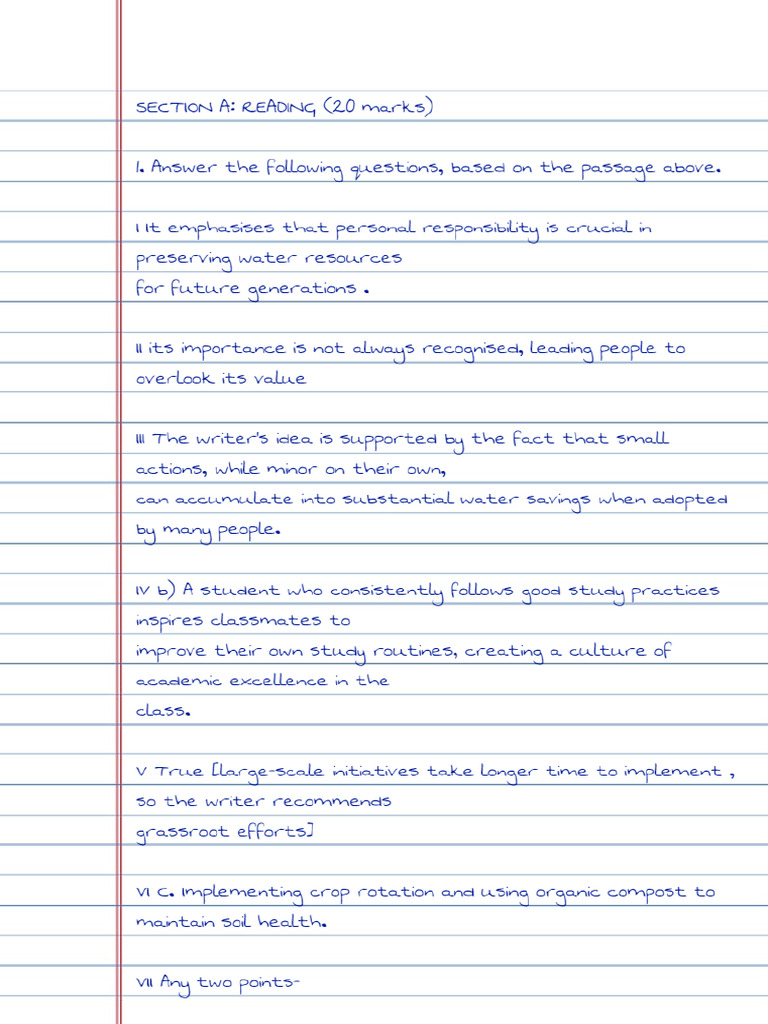 SECTION A: READING (20 marks)
I. Answer the following questions, based on the passage above.
I It emphasises that personal responsibility is crucial in
preserving water resources
for future generations .
II its importance is not always recognised, leading people to
overlook its value
III The writer's idea is supported by the fact that small
actions, while minor on their own,
can accumulate into substantial water savings when adopted
by many people.
IV b) A student who consistently follows good study practices
inspires classmates to
improve their own study routines, creating a culture of
academic excellence in the
class.
V True [large-scale initiatives take longer time to implement ,
so the writer recommends
grassroot efforts]
VI C. Implementing crop rotation and using organic compost to
maintain soil health.
VII Any two points-